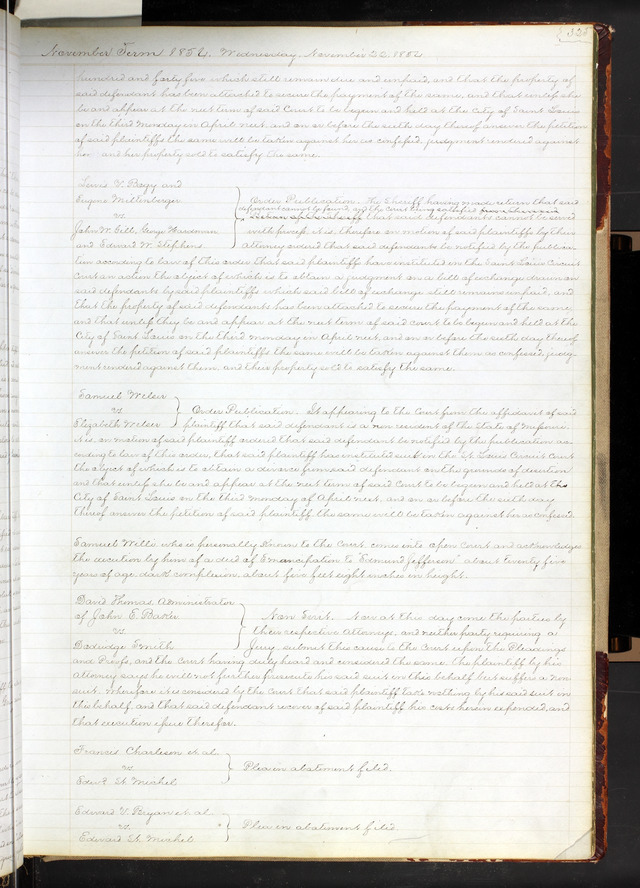 November Term 1854. Wednesday November 22. 1854
hundred and forty five which still remains due and unpaid, and that the property of
said defendant has been attached to secure the payment of the same, and that unless she
be and appear at the next term of said Court to be begun and held at the City of Saint Louis
on the third Monday in April next, and on or before the sixth day thereof answer the petition
of said plaintiffs the same will be taken against her as confessed, judgment rendered against
her and her property sold to satisfy the same.
Lewis V. Bogy and
Eugene Miltenberger
vs.
John W. Bell, George Hardman
and Edward W. Stephens
Order Publication. The Sheriff having made return that said
defendant cannot be found and the Court being satisfied
that said defendants cannot be served
with process it is therefore on motion of said plaintiffs by their
attorney ordered that said defendants be notified by the publica-
tion according to law of this order that said plaintiffs have instituted in the Saint Louis Circuit
Court an action the object of which is to obtain a judgment on a bill of exchange drawn on
said defendants by said plaintiffs which said bill of exchange still remains unpaid, and
that the property of said defendants has been attached to secure the payment of the same,
and that unless they be and appear at the next term of said court to be begun and held at the
City of Saint Louis on the third Monday in April next, and on or before the sixth day thereof
answer the petition of said plaintiffs the same will be taken against them as confessed, judg-
ment rendered against them, and their property sold to satisfy the same.
Samuel Welser
vs.
Elizabeth Welser
Order Publication. It appearing to the Court from the affidavit of said
plaintiff that said defendant is a non resident of the State of Missouri.
it is on motion of said plaintiff ordered that said defendant be notified by the publication ac-
cording to law of this order, that said plaintiff has instituted suit in the St. Louis Circuit Court
the object of which is to obtain a divorce from said defendant on the grounds of desertion
and that unless she be and appear at the next term of said Court to be begun and held at the
City of Saint Louis on the third Monday of April next, and on or before the sixth day
thereof answer the petition of said plaintiff the same will be taken against her as confessed.
Samuel Willi, who is personally known to the Court, comes into open Court and acknowledges
the execution by him of a deed of Emancipation to "Edmund Jefferson" about twenty five
years of age dark complexion about five feet eight inches in height.
David Thomas, Administrator
of John E. Baker
vs.
Smith
Non Suit. Now at this day come the parties by
their respective Attorneys, and neither party requiring a
Jury, submit this cause to the Court upon the Pleadings
and Proofs, and the Court having duly heard and considered the same the plaintiff by his
attorney says he will not further prosecute his said suit in this behalf but suffers a non
suit. Wherefore it is considered by the Court that said plaintiff take nothing by his said suit in
this behalf and that said defendant recover of said plaintiff his costs herein expended, and
that execution issue therefor.
Francis Charleson et. al.
vs.
Edwd. St. Michel
Plea in abatement filed.
Edward V. Bryan et. al.
vs.
Edward St. Michel
Plea in abatement filed.